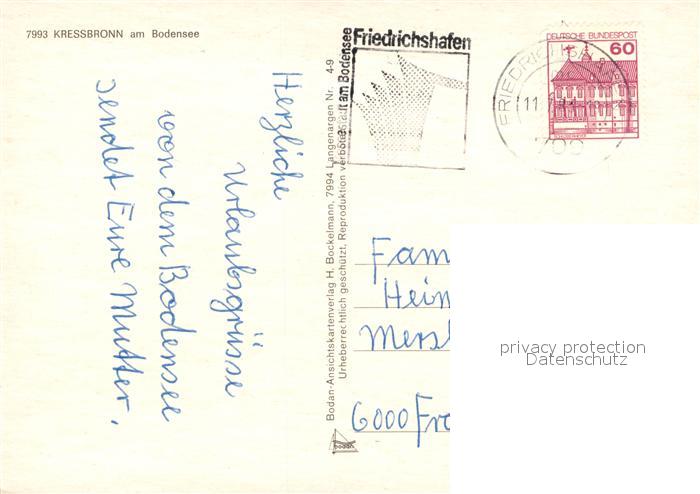 7993 KRESSBRONN am Bodensee
Herzliche
Urlaubsgrüsse
von dem Bodensee
sendet Eure Mutter.
Bodan-Ansichtskartenverlag H. Bockelmann, 7994 Langenargen Nr. 4-9
Urheberrechtlich geschützt, Reproduktion verboten
bodan
Friedrichshafen
am Bodensee
DEUTSCHE BUNDESPOST
60
FRIEDRICHSHAFEN
11
Fam
Hein
6000 Fra
privacy protection
Datenschutz